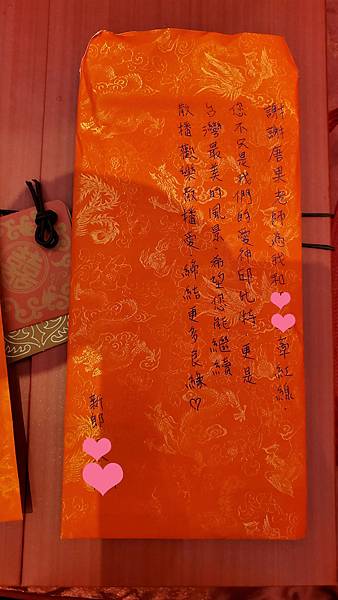 謝謝唐果老師為我和牽紅線.
您不只是我們的愛神邱比特 更是
台灣最美的風景.希望您能繼續
散播歡樂散播愛 締結更多良緣♡
新郎